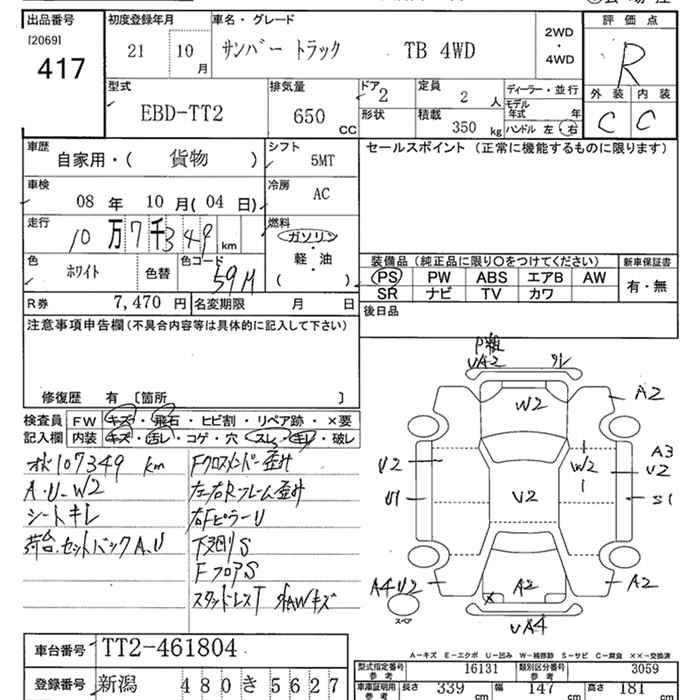 出品番号
[2069]
417
初度登録年月
21 10 月
車名・グレード
サンバー トラック TB 4WD
2WD
・
4WD
評価点
R
外装 内装
C C
型式
EBD-TT2
排気量
650 CC
ドア
2
形状
定員
2 人
積載
350 kg
ディーラー・並行
モデル年式 年
ハンドル 左 右
車歴
自家用・( 貨物 )
シフト
5MT
車検
08 年 10 月(04 日)
冷房
AC
走行
10 万 7 千 3 4 9 km
燃料
ガソリン
軽・油
( )
色
ホワイト
色替
色コード
59M
R券 7,470 円
名変期限 月 日
セールスポイント (正常に機能するものに限ります)
装備品 (純正品に限り○をつけてください)
PS PW ABS エアB AW
SR ナビ TV カワ
新車保証書
有・無
後日品
注意事項申告欄(不具合内容等は具体的に記入して下さい)
修復歴 有 [箇所 ]
検査員記入欄
FW キズ・飛石・ヒビ割・リペア跡・×要
内装 キズ・汚レ・コゲ・穴・スレ・キレ・破レ
107349 km
A・U-W2
シートキレ
荷台.セットバックA.U
Fクロスメンバー歪計
左右Rフレーム歪計
右FピラーU
下廻リS
FフロアS
スタッドレスT AWキズ
UA2
W2
A2
U2
W2
A3
U2
U1
V2
S1
A4U2
A2
A2
スペア
UA4
A-キズ E-エクボ U-凹み W-補修跡 S-サビ C-腐食 ××-交換済
車台番号 TT2-461804
登録番号 新潟 480 き 5627
型式指定番号 参考 16131
類別区分番号 参考 3059
車庫証明用 参考
長さ 339 cm
幅 147 cm
高さ 181 cm